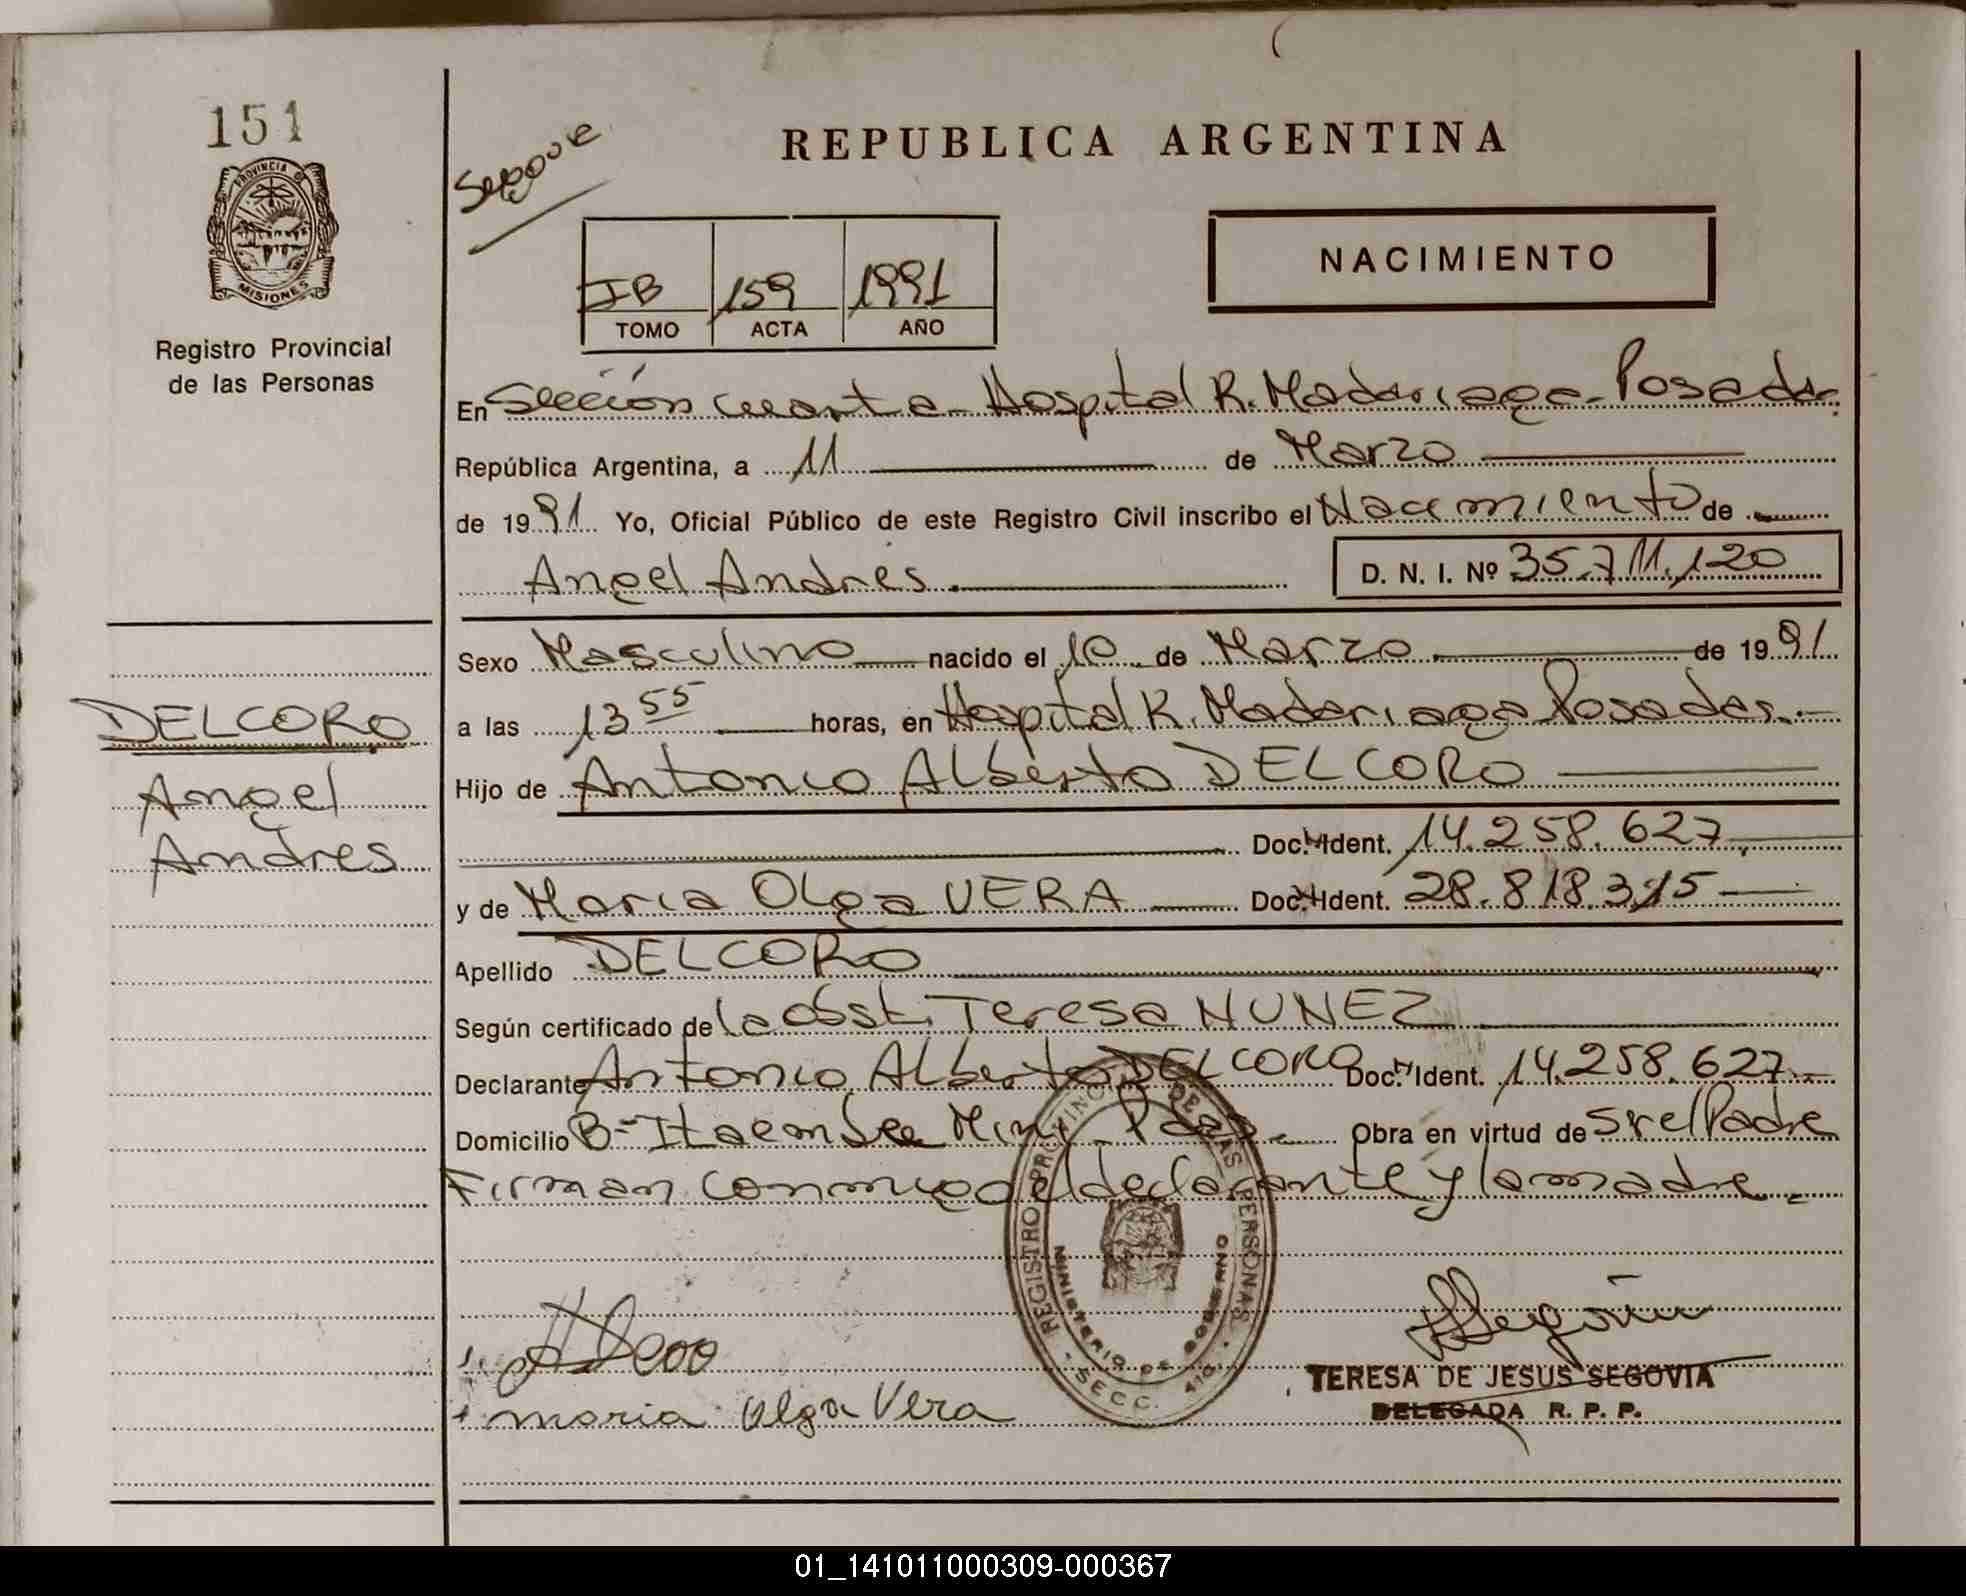 151
PROVINCIA DE
MISIONES
Registro Provincial
de las Personas
DELCORO
Angel
Andres
REPUBLICA ARGENTINA
NACIMIENTO
159 1991
TOMO ACTA AÑO
En Sección cuarta - Hospital R. Madariaga - Posadas
República Argentina, a 11 de Marzo
de 1991 Yo, Oficial Público de este Registro Civil inscribo el Nacimiento de
Angel Andres D. N. I. Nº 35.711.120
Sexo Masculino nacido el 10 de Marzo de 1991
a las 13 55 horas, en Hospital R. Madariaga Posadas.-
Hijo de Antonio Alberto DELCORO
Doc. Ident. 14.258.627
y de Maria Olga VERA Doc. Ident. 28.818.315
Apellido DELCORO
Según certificado de la obst. Teresa NUNEZ
Declarante Antonio Alberto DELCORO Doc. Ident. 14.258.627.-
Domicilio Bº Itaembe Mini - Pdas. Obra en virtud de ser el Padre
Firman conmigo el declarante y la madre.
REGISTRO PROVINCIAL DE LAS PERSONAS
MINISTERIO DE GOBIERNO
SECC. 4ta.
Maria Olga Vera
TERESA DE JESUS SEGOVIA
DELEGADA R. P. P.
01_141011000309-000367